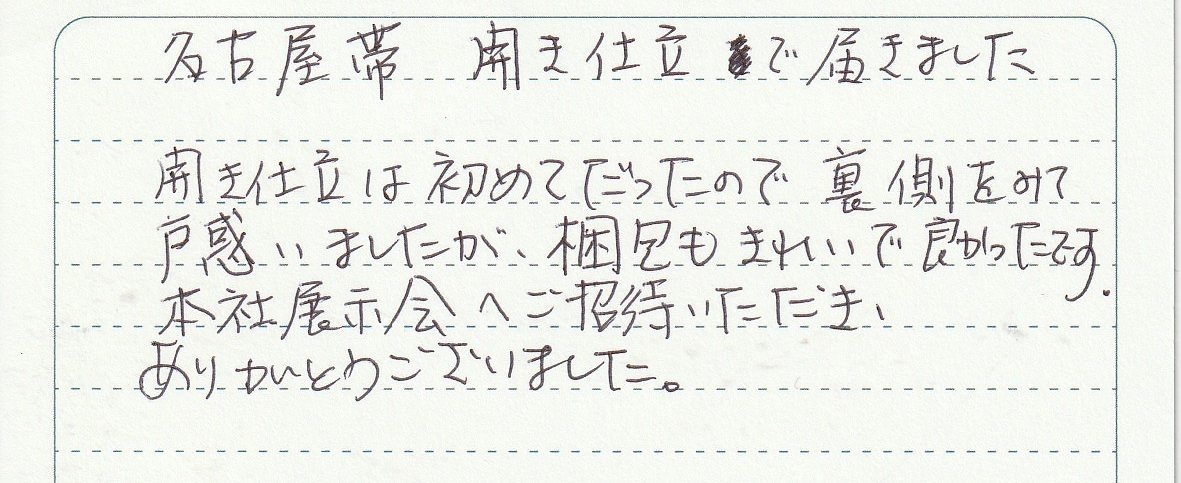 名古屋帯 開き仕立で届きました
開き仕立は初めてだったので裏側をみて
戸惑いましたが、梱包もきれいで良かったです.
本社展示会へご招待いただき、
ありがとうございました。